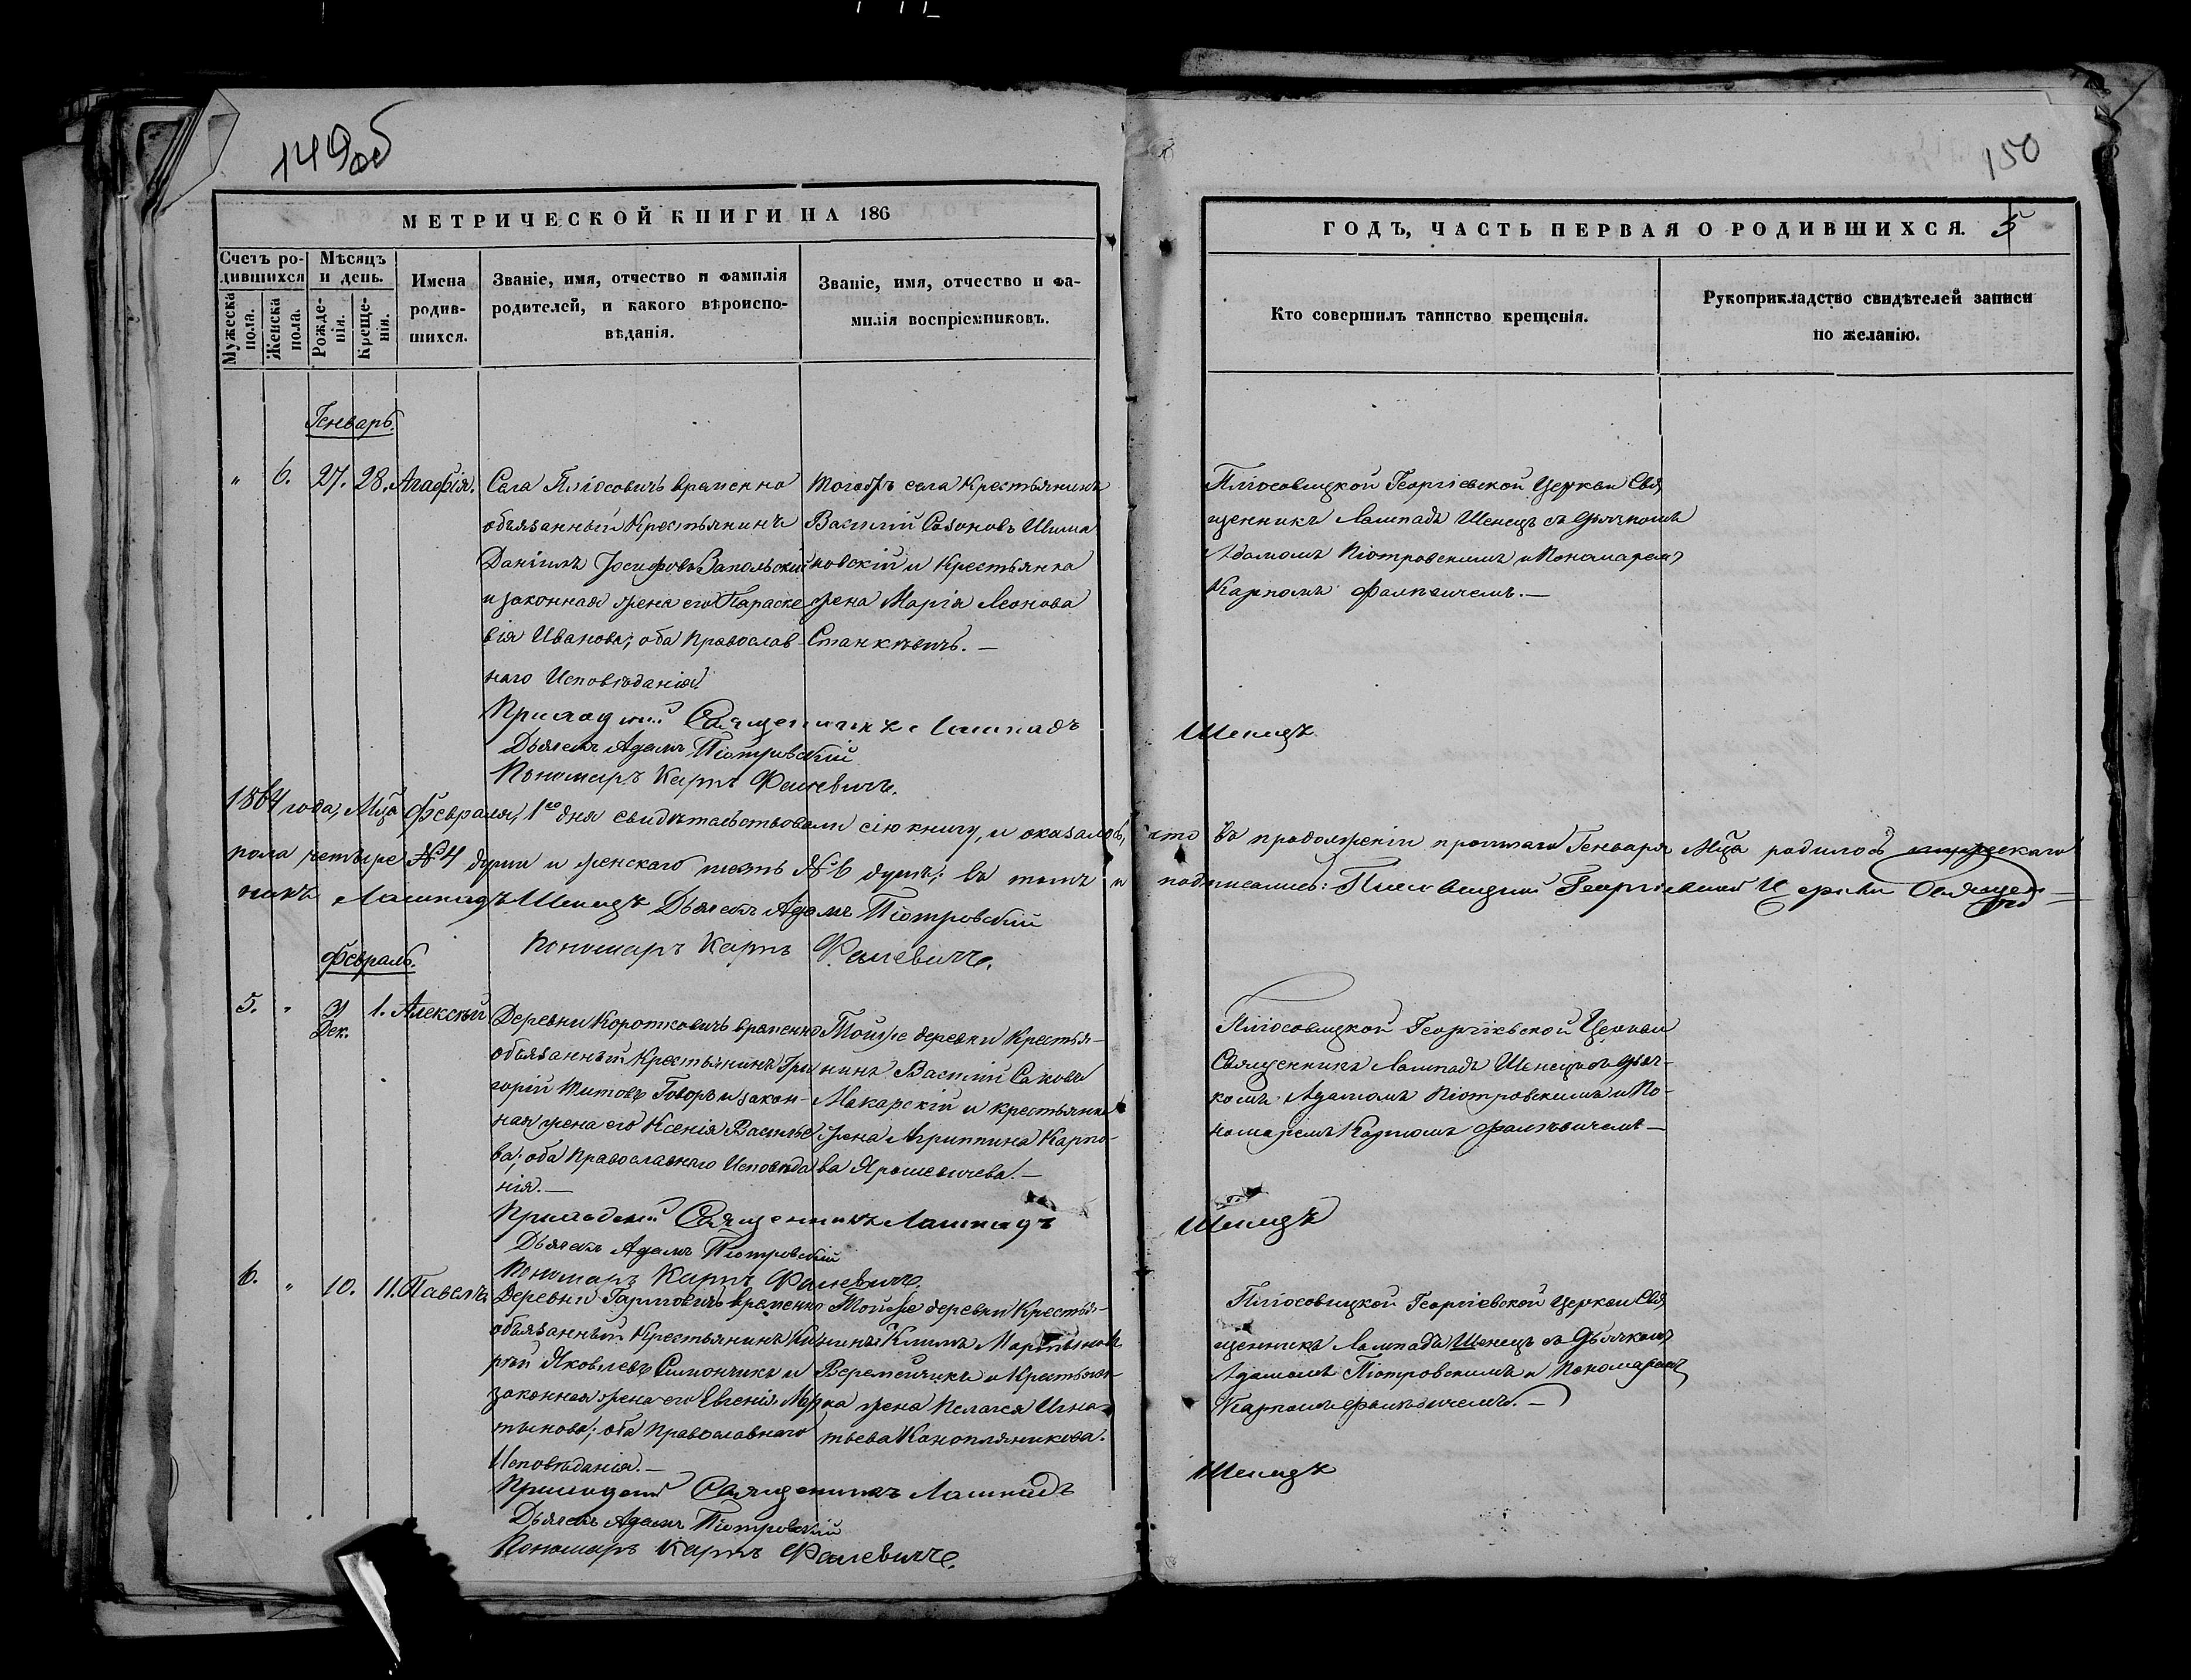 149об
МЕТРИЧЕСКОЙ КНИГИ НА 186
Счетъ ро-
дившихся
Мѣсяцъ
и день.
Мужеска
пола.
Женска
пола.
Рожде-
нія.
Креще-
нія.
Имена
родив-
шихся.
Званіе, имя, отчество и фамилія
родителей, и какого вѣроиспо-
вѣданія.
Званіе, имя, отчество и фа-
милія воспріемниковъ.
Генварь.
" 6. 27. 28. Агафія.
Села Плюсовичъ временно
обязанный Крестьянинъ
Даніилъ Іосифовъ Запольскій
и законная жена его Параске
вія Иванова; оба Православ-
наго Исповѣданія.
Тогожъ села Крестьянинъ
Василій Созоновъ Шима
новскій и Крестьянка
жена Марія Леонова
Станкѣвичъ. —
Приходскій Священникъ Лампадъ
Дьячекъ Адамъ Піотровскій
Пономарь Карпъ Фалевичъ.
1864 года, Мца Февраля, 1го дня свидѣтельствовали сію книгу, и оказалось,
пола четыре № 4 души и женскаго шесть № 6 душъ; въ томъ и
никъ Лампадъ Шенецъ Дьячекъ Адамъ Піотровскій
Пономарь Карпъ Фалевичъ.
Февраль.
5. " 31 Дек. 1. Алексѣй
Деревни Короткевичъ временно
обязанный Крестьянинъ Гри
горій Титовъ Говоръ и закон-
ная жена его Ксенія Василье
ва; оба Православнаго Исповѣда
нія. —
Тойже деревни Крестья-
нинъ Василій Саковъ
Макарскій и крестьянка
жена Агриппина Карпо-
ва Ярошевичева. —
Приходскій Священникъ Лампадъ
Дьячекъ Адамъ Піотровскій
Пономарь Карпъ Фалевичъ.
6. " 10. 11. Павелъ
Деревни временно
обязанный Крестьянинъ
Яковлевъ Симончикъ и
законная жена его Евгенія Мар
тынова; оба Православнаго
Исповѣданія. —
Тойже деревни Крестья-
нинъ Климъ Мартыновъ
Веремейчикъ и Крестьян-
ка жена Пелагея Игна-
тьева Коноплянникова.
Приходскій Священникъ Лампадъ
Дьячекъ Адамъ Піотровскій
Пономарь Карпъ Фалевичъ.
150
ГОДЪ, ЧАСТЬ ПЕРВАЯ О РОДИВШИХСЯ. 5
Кто совершилъ таинство крещенія.
Рукоприкладство свидѣтелей записи
по желанію.
Плюсовицкой Георгіевской Церкви Свя
щенникъ Лампадъ Шенецъ съ Дьячкомъ
Адамомъ Піотровскимъ и Пономаремъ
Карпомъ Фалѣвичемъ. —
Шенецъ
что въ продолженіи прошлаго Генваря Мца родилось мужескаго
подписались: Плюсовицкой Георгіевской Церкви Священ-
Плюсовицкой Георгіевской Церкви
Священникъ Лампадъ Шенецъ съ Дьяч-
комъ Адамомъ Піотровскимъ и По-
номаремъ Карпомъ Фалѣвичемъ —
Шенецъ
Плюсовицкой Георгіевской Церкви Свя
щенникъ Лампадъ Шенецъ съ Дьячкомъ
Адамомъ Піотровскимъ и Пономаремъ
Карпомъ Фалѣвичемъ. —
Шенецъ